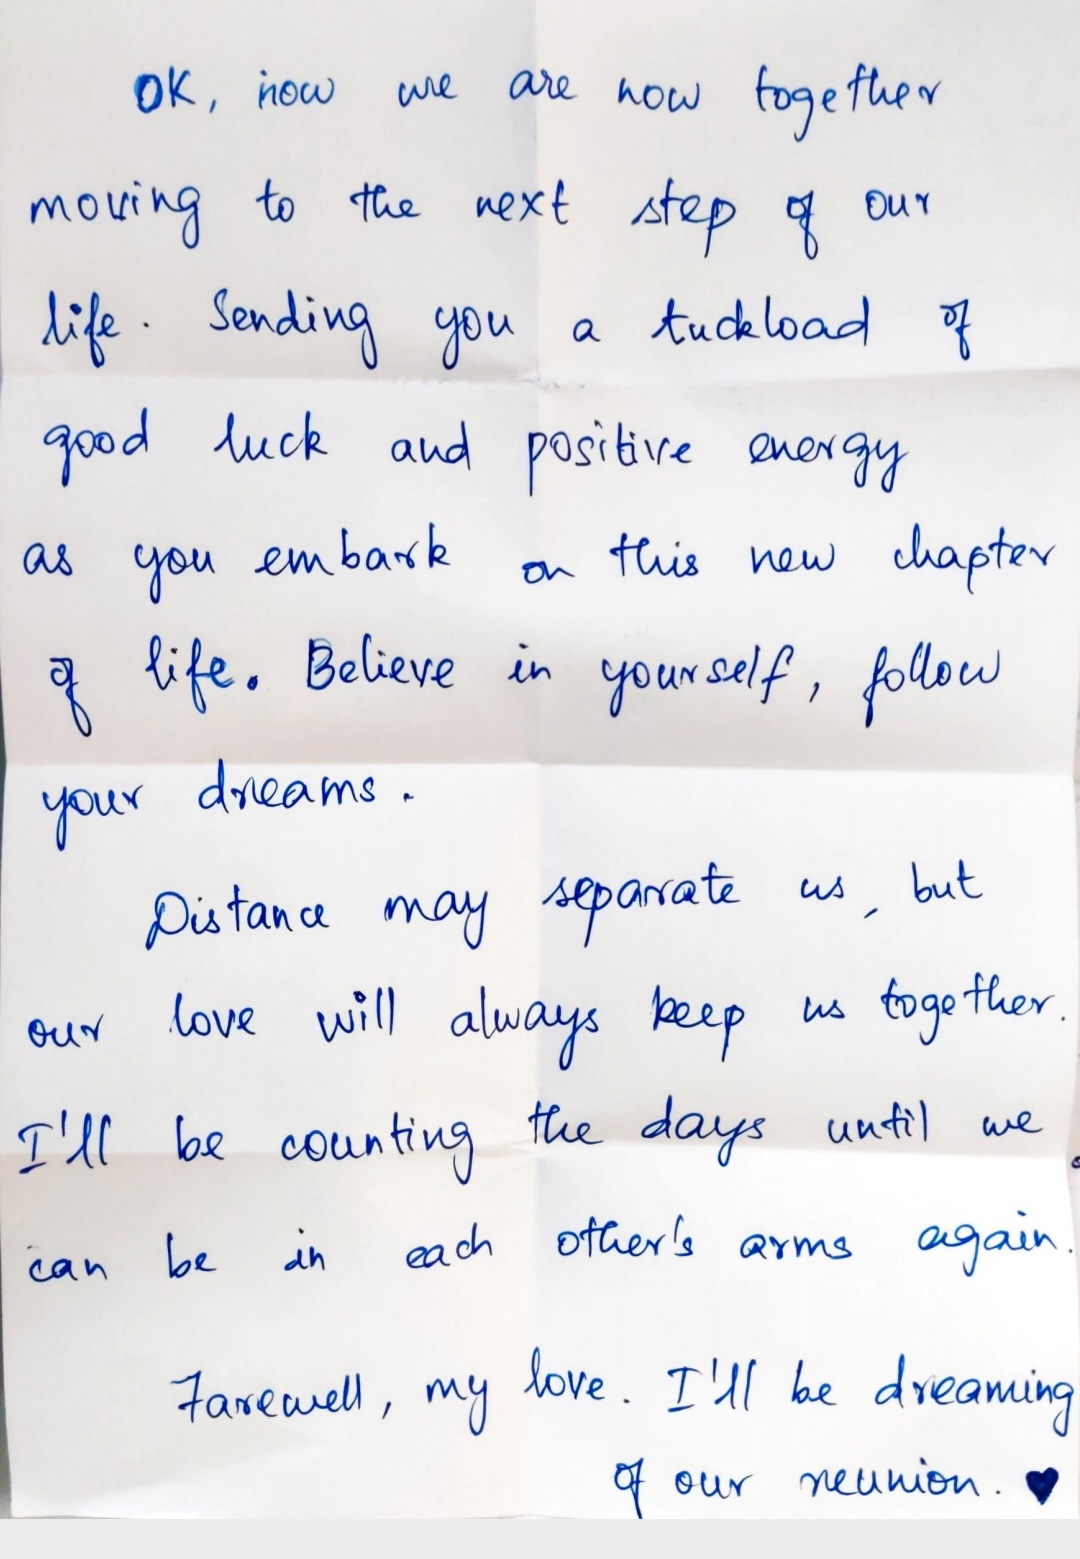 OK, now we are now together
moving to the next step of our
life. Sending you a tuckload of
good luck and positive energy
as you embark on this new chapter
of life. Believe in yourself, follow
your dreams.
Distance may separate us, but
our love will always keep us together.
I'll be counting the days until we
can be in each other's arms again.
Farewell, my love. I'll be dreaming
of our reunion. ♥